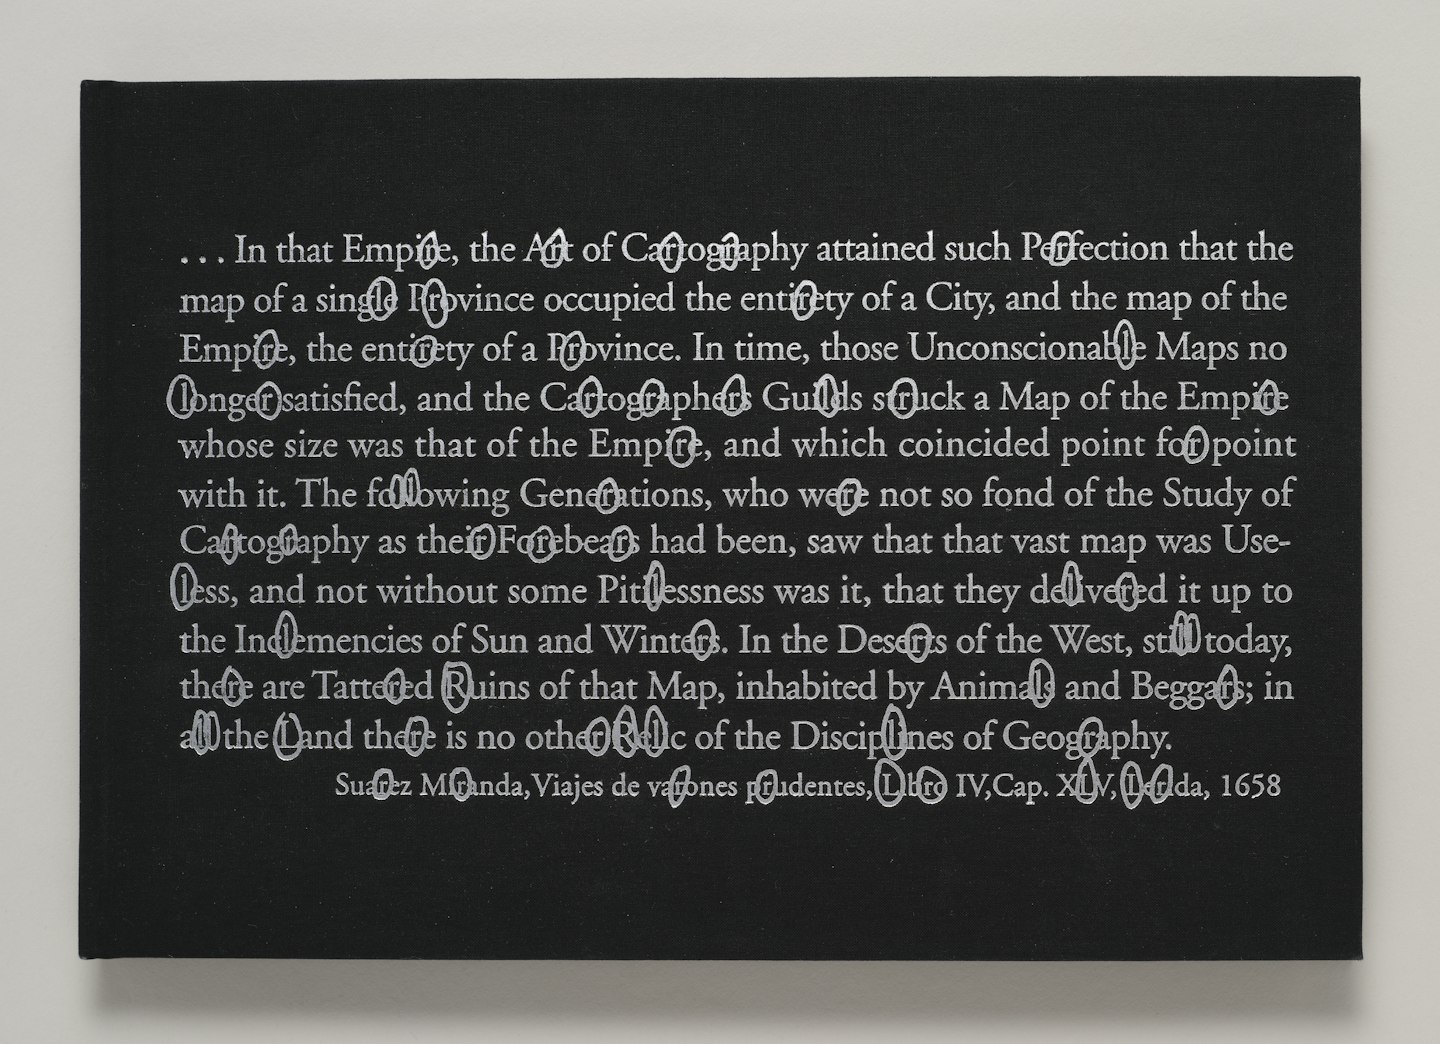 . . . In that Empire, the Art of Cartography attained such Perfection that the
map of a single Province occupied the entirety of a City, and the map of the
Empire, the entirety of a Province. In time, those Unconscionable Maps no
longer satisfied, and the Cartographers Guilds struck a Map of the Empire
whose size was that of the Empire, and which coincided point for point
with it. The following Generations, who were not so fond of the Study of
Cartography as their Forebears had been, saw that that vast map was Use-
less, and not without some Pitilessness was it, that they delivered it up to
the Inclemencies of Sun and Winters. In the Deserts of the West, still today,
there are Tattered Ruins of that Map, inhabited by Animals and Beggars; in
all the Land there is no other Relic of the Disciplines of Geography.
Suarez Miranda,Viajes de varones prudentes, Libro IV,Cap. XLV, Lerida, 1658